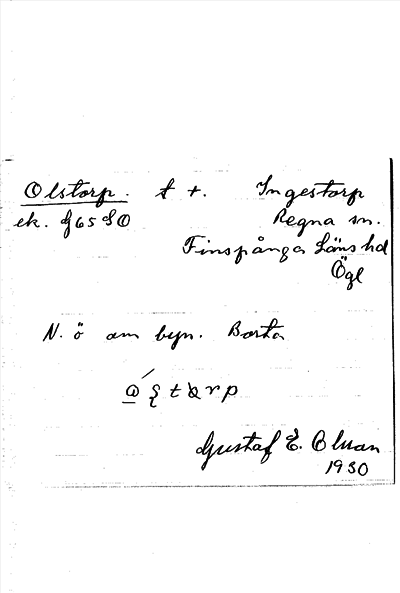 Olstorp. t +. Ingestorp
ek. g 65 S O Regna sn.
Finspånga Läns hd
Ögl
N. ö om byn. Borta
Gustaf E. Ohman
1930